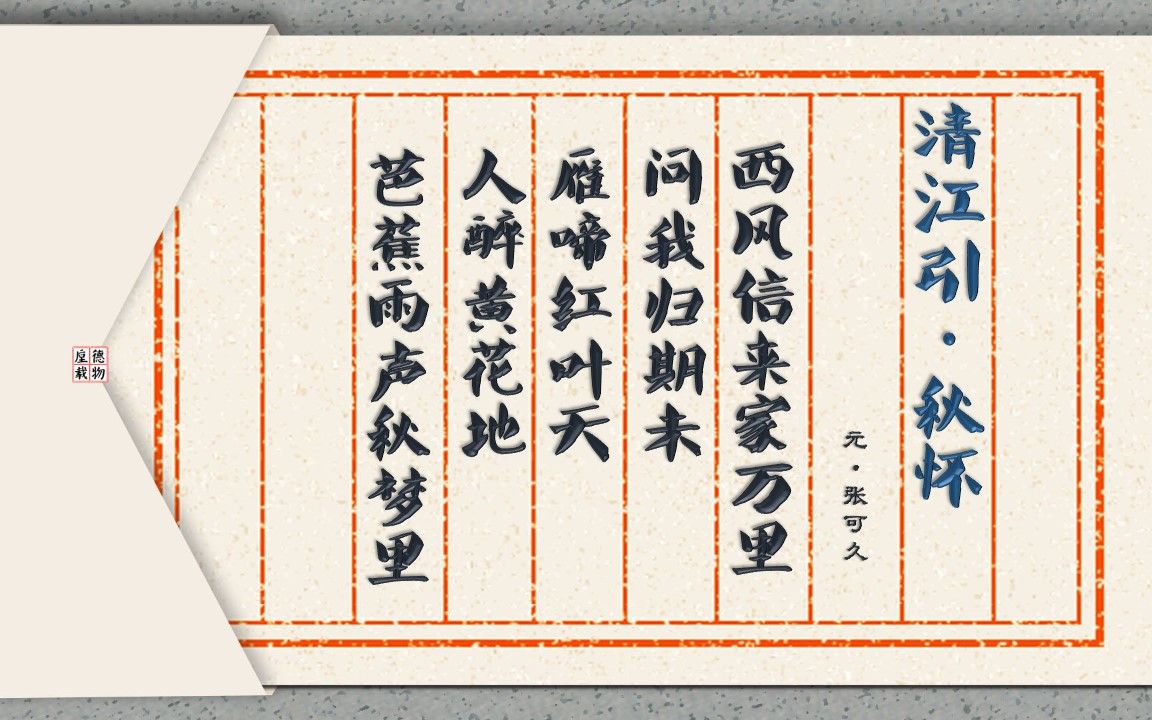 清江引·秋怀
元·张可久
西风信来家万里
问我归期未
雁啼红叶天
人醉黄花地
芭蕉雨声秋梦里
德物
載